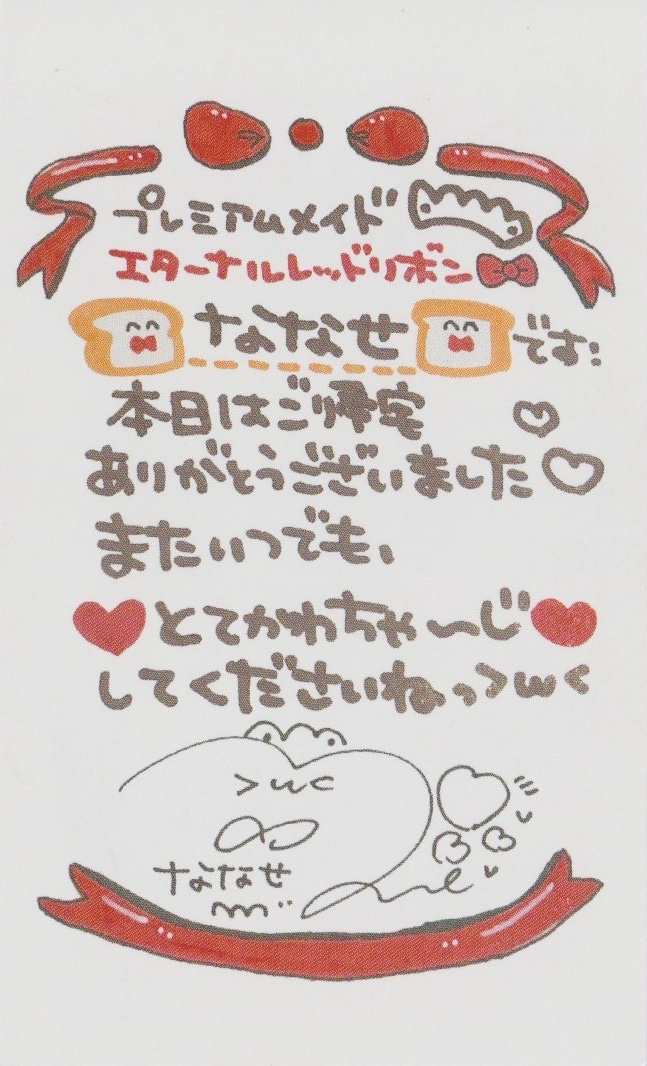 プレミアムメイド
エターナルレッドリボン
ななせです:
本日はご帰宅
ありがとうございました
またいつでも、
とてかわちゃ〜じ
してくださいねっ>w<
>w<
ななせ